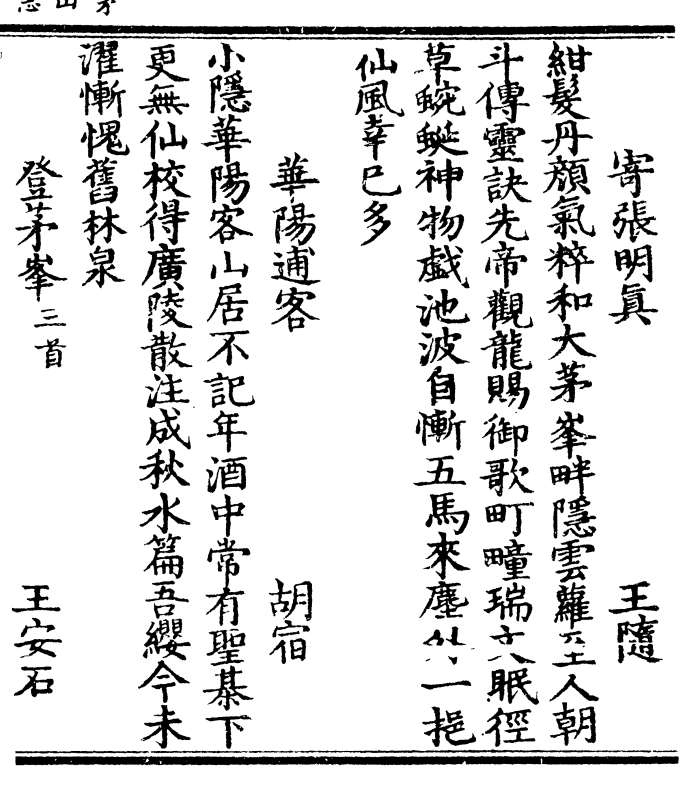 寄張明眞　王隨
紺髮丹顔氣粹和大茅峯畔隱雲蘿至人朝
斗傳靈訣先帝觀龍賜御歌町疃瑞眠徑
草蜿蜒神物戱池波自慚五馬來塵外一挹
仙風幸已多
華陽逋客　胡宿
小隱華陽客山居不記年酒中常有聖棊下
更無仙校得廣陵散注成秋水篇吾纓今未
濯慚愧舊林泉
登茅峯三首　王安石